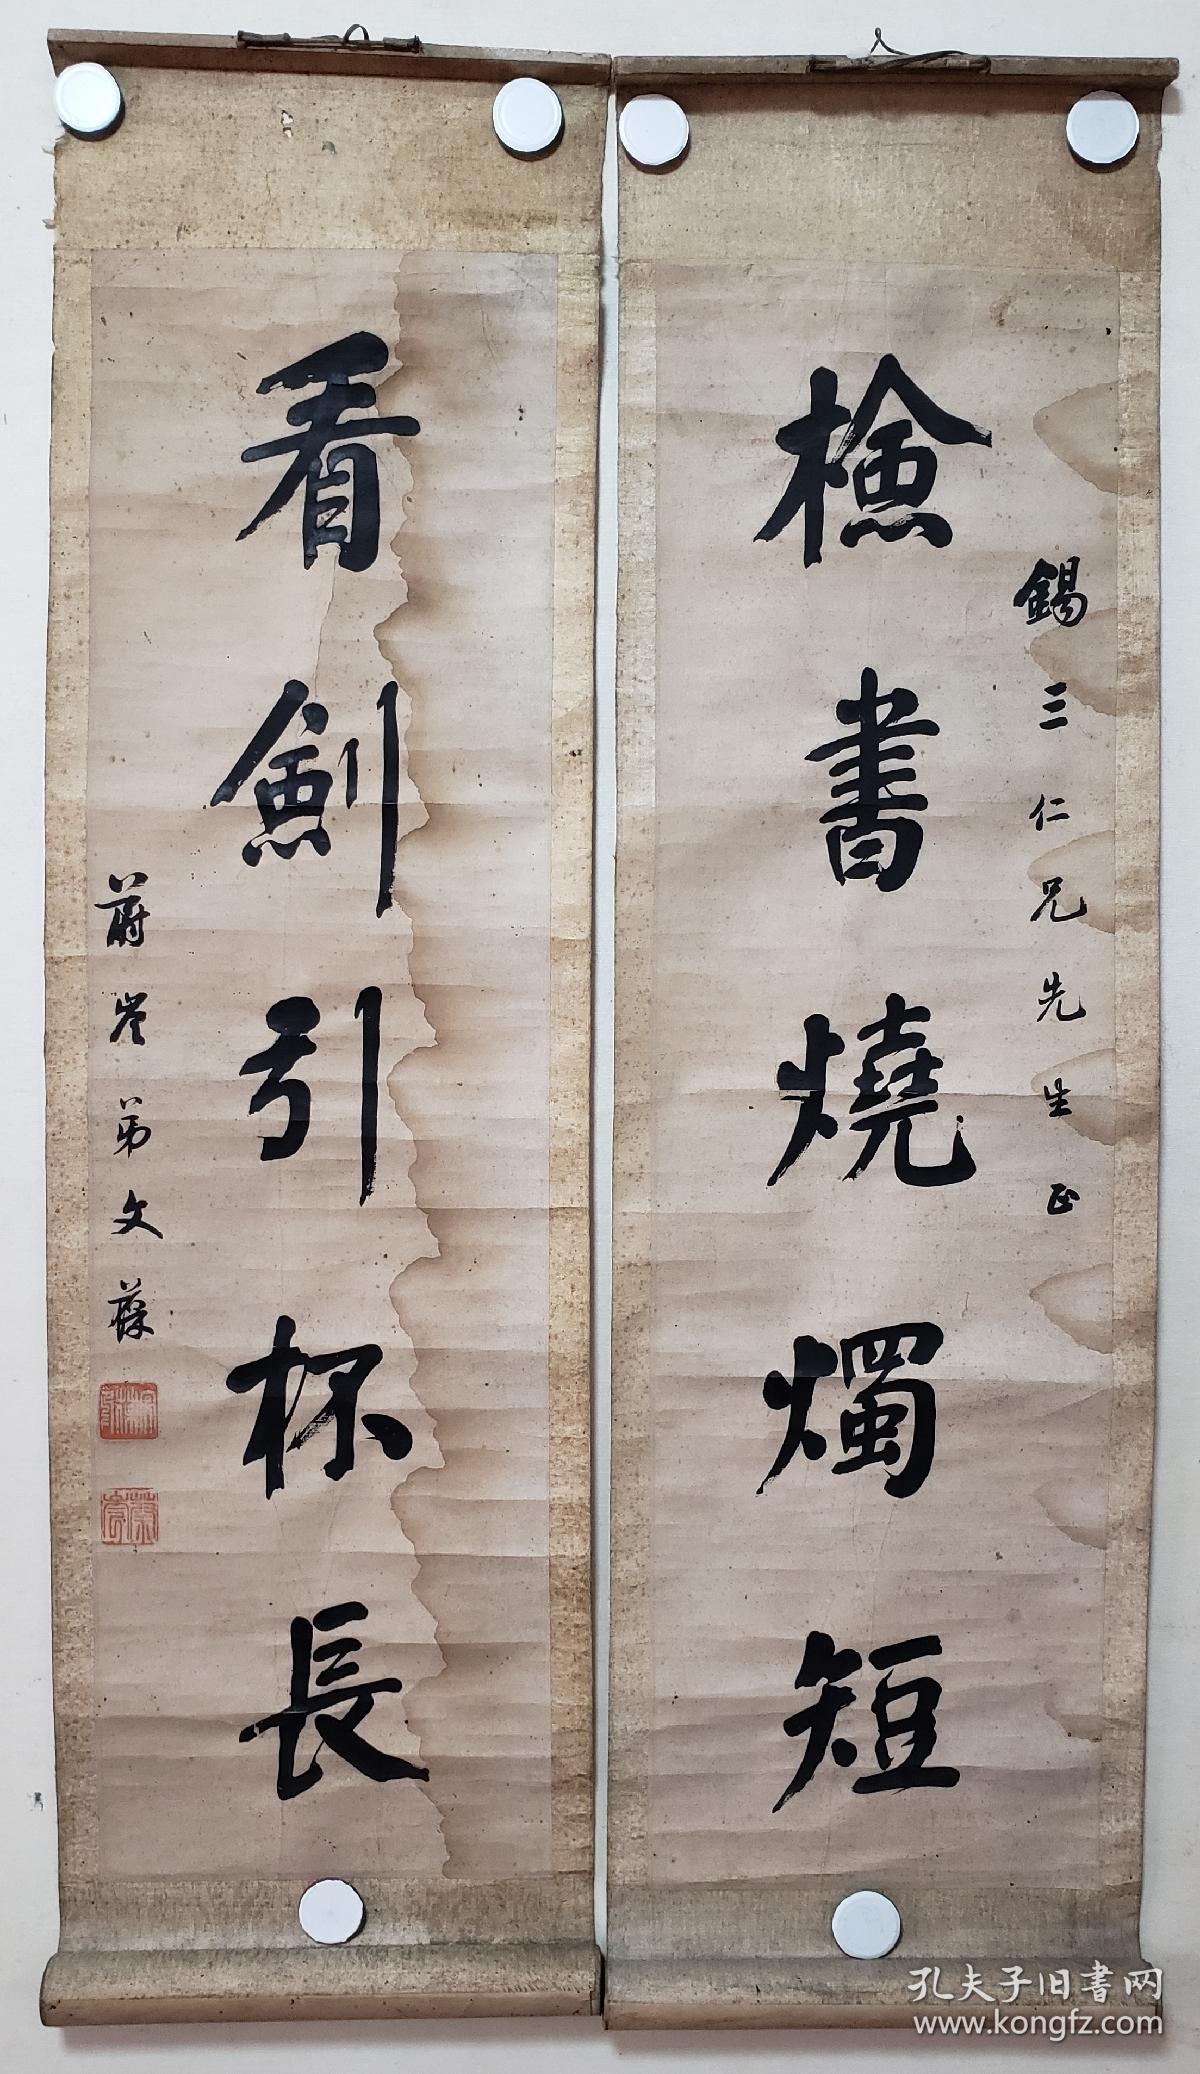 檢書燒燭短
錫三仁兄先生正
看劍引杯長
蔚岑弟文葆
孔夫子旧書网
www.kongfz.com